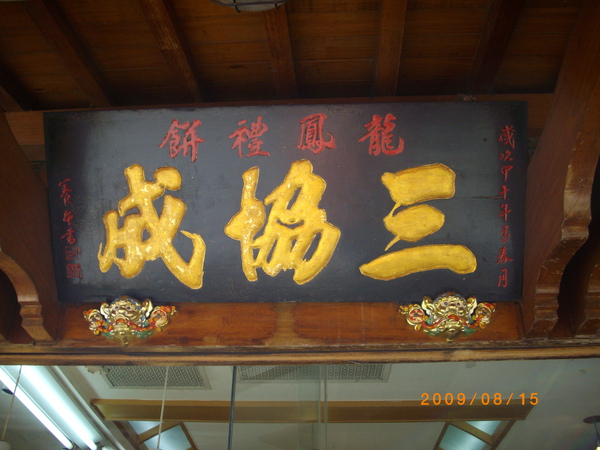 龍鳳禮餅
三協成
歲次甲午年
春月
2009/08/15